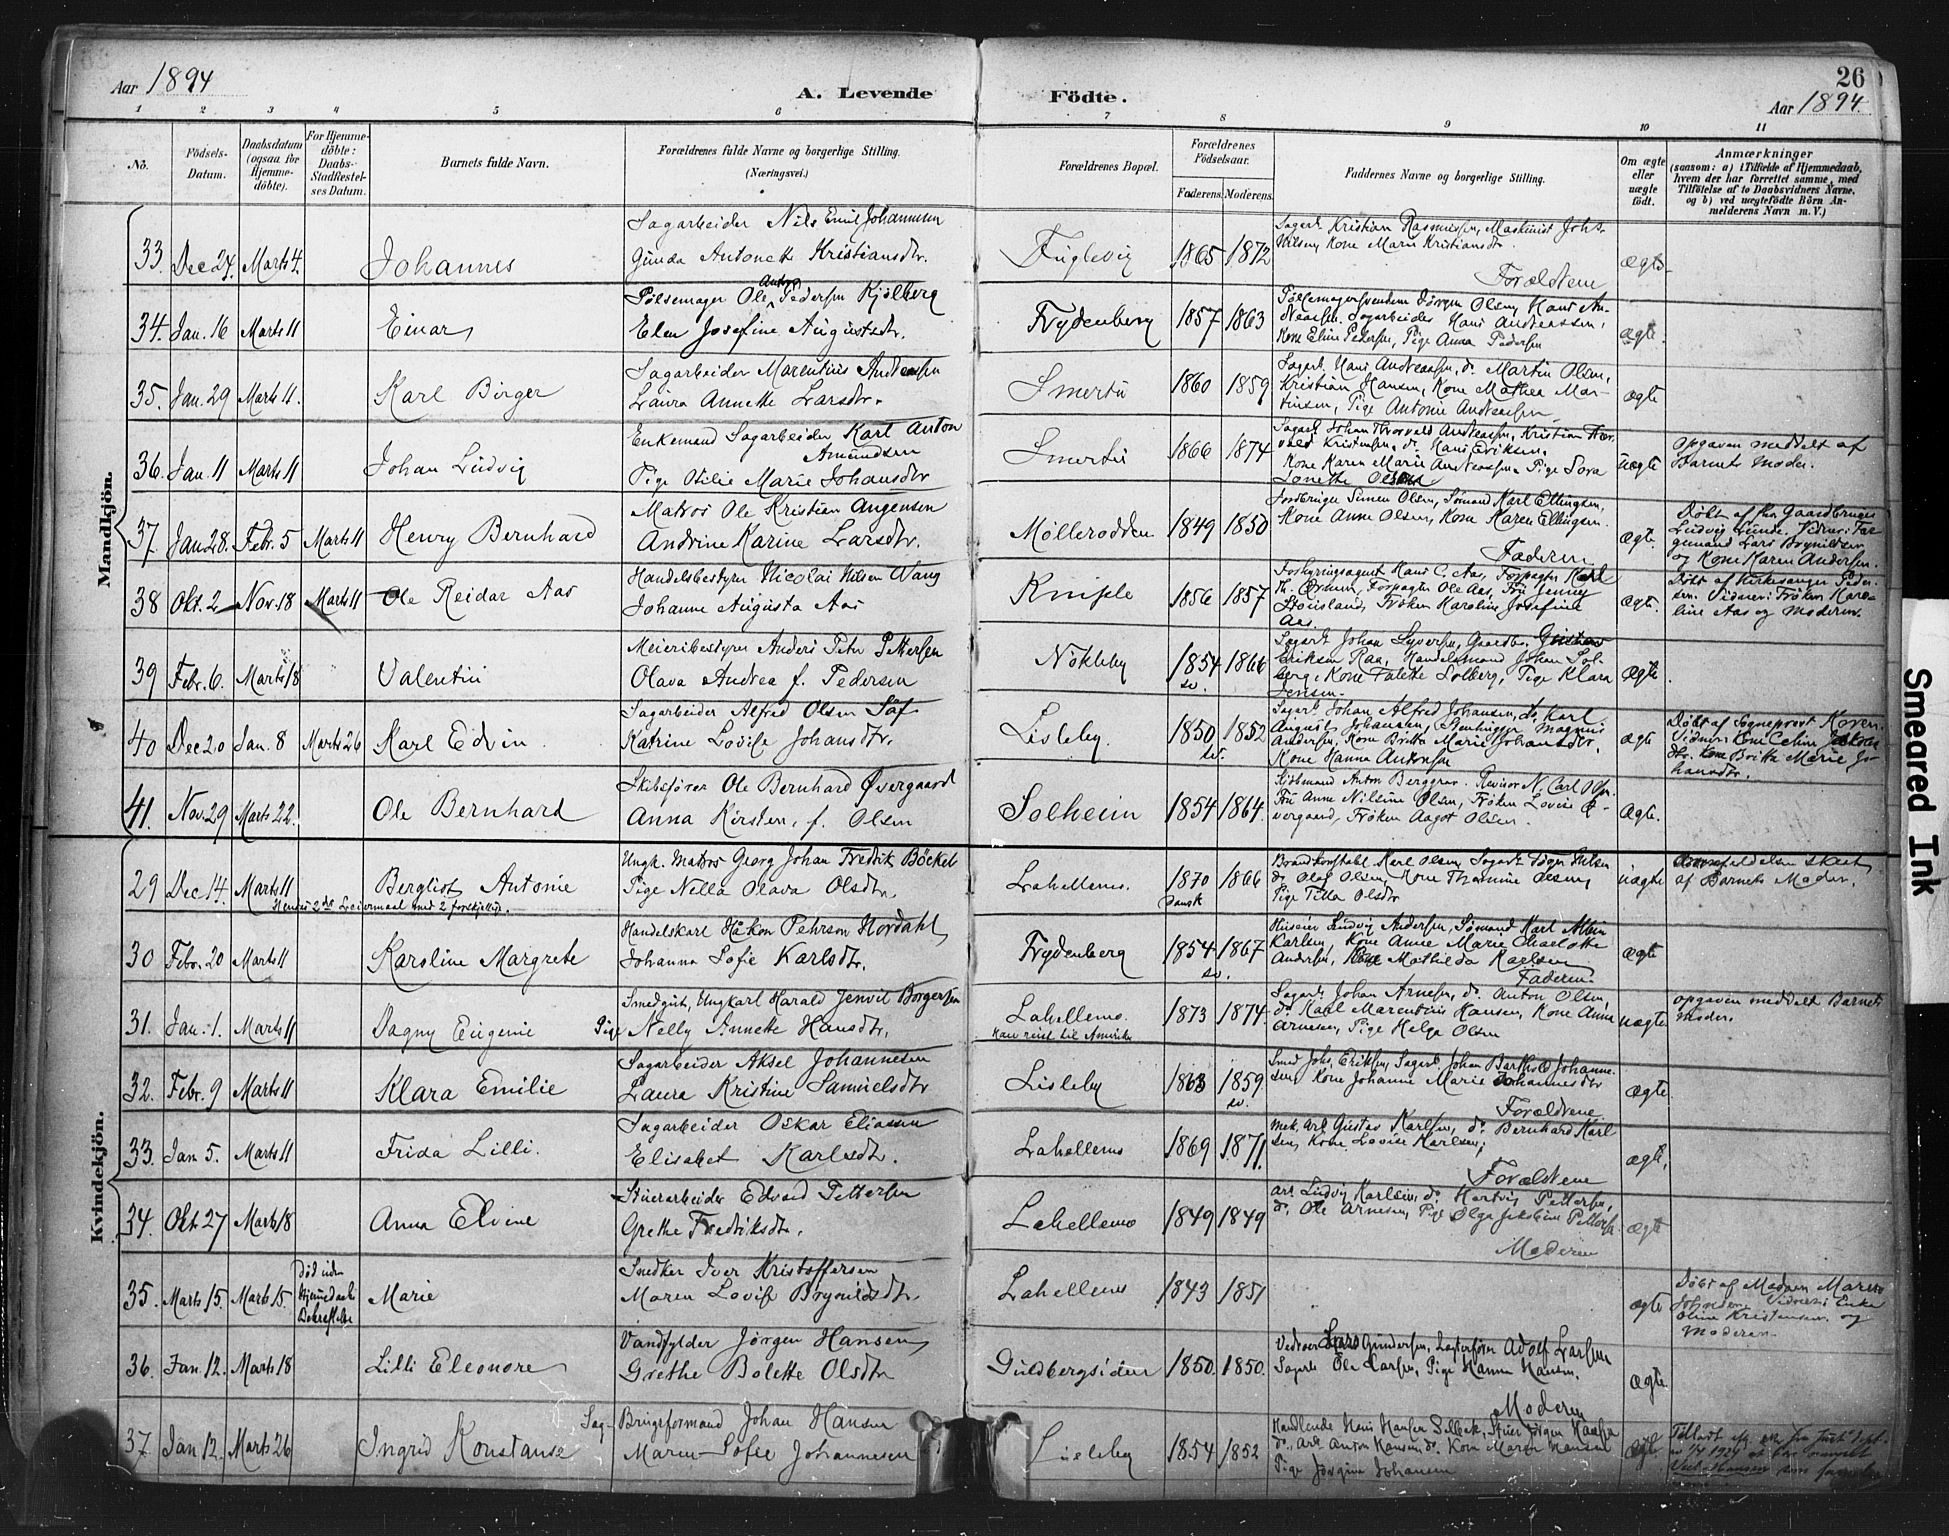 26
Aar 1894
A. Levende Födte.
Aar 1894.
1 2 3 4 5 6 7 8 9 10 11
No.
Födsels-
Datum.
Daabsdatum
(ogsaa for
Hjemme-
döbte).
For Hjemme-
döbte:
Daabs-
Stadfæstel-
ses Datum.
Barnets fulde Navn.
Forældrenes fulde Navne og borgerlige Stilling.
(Næringsvei.)
Forældrenes Bopæl.
Forældrenes
Födselsaar.
Faderens. Moderens.
Faddernes Navne og borgerlige Stilling.
Om ægte
eller
uægte
født.
Anmærkninger
(saasom: a) i Tilfælde af Hjemmedaab,
hvem der har forrettet samme, med
Tilføielse af to Daabsvidners Navne,
og b) ved uægtefødte Börn An-
melderens Navn m. V.)
Mandkjön.
33. Dec 24. Marts 4. Johannes
Sagarbeider Nils Emil Johannesen
Gunda Antonette Kristiansdtr.
Fuglevig 1865 1872
Sagarb. Kristian Rasmussen, Maskinist Johs.
Nilsen, Kone Marie Kristiansdtr.
Forældrene
ægte
34. Jan. 16 Marts 11 Einar
Pölsemager Ole Anton Pedersen Kjölberg
Elen Josefine Augustsdtr.
Trydenberg 1857 1863
Pölsemagersvendene Jörgen Olsen, Hans An-
dreassen, Sagarbeider Hans Andreassen,
Kone Eline Pedersen, Pige Anna Pedersen
ægte.
35. Jan. 29 Marts 11. Karl Birger
Sagarbeider Marentius Andreassen
Laura Annette Larsdtr.
Smertu 1860 1859
Sagarb. Hans Andreassen, do. Martin Olsen,
Kristian Hansen, Kone Mathea Mar-
tinsen, Pige Antonie Andreassen
ægte
36. Jan. 11 Marts 11 Johan Ludvig
Enkemand Sagarbeider Karl Anton
Amundsen
Pige Otilie Marie Johansdtr
Smertu 1866 1874
Sagarb. Johan Thorvald Andreassen, Kristian Thor-
vald Kristensen, do. Hans Eriksen.
Kone Karen Marie Andreassen, Pige Lova
Lonette Olsen
uægte
Opgaven meddelt af
Barnets Moder.
37. Jan 28. Febr. 5 Marts 11 Henry Bernhard
Matros Ole Kristian Angensen
Andrine Karine Larsdtr.
Möllerodden 1849 1850
Jordbruger Simen Olsen, Sömand Karl Ellingsen,
Kone Anne Olsen, Kone Karen Ellingsen.
Faderen
ægte.
Döbt af Gaardbruger
Ludvig Lunde. Vidner: Far
gemand Lars Brynildsen
og Kone Karen Andersen.
38 Okt. 2 Nov. 18 Marts 11 Ole Reidar Aas
Handelsbestyrer Nicolai Nilsen Wang
Johanne Augusta Aas
Kniple 1856 1857
Forsikringsagent Hans C. Aas, Forpagter Karl
Th. Örmen, Forpagter Ole Aas, Fru Jenny
Stousland, Fröken Karoline Josefine
Aas.
ægte.
Döbt af Kirkesanger Peder-
sen. Vidner: Fröken Karo-
line Aas og Moderen.
39 Febr. 6. Marts 18 Valentin
Meieribestyrer Anders Petr Pettersen
Olava Andrea f. Pedersen
Nökleby 1854 sv. 1866
Sagarb. Johan Syversen, Gaardbr. Gustav
Eriksen Raa, Handelsmand Johan Sol-
berg, Kone Valette Solberg, Pige Klara
Jensen.
ægte
40 Dec 20 Jan. 8 Marts 26 Karl Edvin.
Sagarbeider Alfred Olsen Säf
Katrine Lovise Johansdtr.
Lisleby. 1850 sv. 1852
Sagarb. Johan Alfred Johansen, do. Karl
August Johansen, Stenhugger Magnus
Andersen, Kone Britta Marie Johansdtr.
Kone Hanna Antonsen
ægte
Döbt af Sogneprest Koren.
Vidner: Kone Celine Jakobs
dtr. Kone Britta Marie Jo-
hansdtr.
41. Nov 29 Marts 22. Ole Bernhard
Skibsförer Ole Bernhard Övergaard
Anna Kirsten, f. Olsen
Solheim 1854 1864.
Kjöbmand Anton Berggrav. Revisor N. Carl Olsen.
Fru Anne Nilsine Olsen, Fröken Lovise Ö-
vergaard, Fröken Aagot Olsen.
ægte.
Kvindekjön.
29 Dec 14. Marts 11 Bergliot Antonie
Hendes 2det Leiermaal med 2 forskjellige.
Ungk. Matros Georg Johan Fredrik Böckel
Pige Nella Olava Olsdtr.
Lahellemo. 1870 dansk 1866
Brandkonstabl Karl Olsen, Sagarb. Roger Nilsen
do. Olof Olsen, Kone Thomine Olsen,
Pige Tilla Olsdtr
uægte
Anmeldelsen skeet
af Barnets Moder.
30 Febr. 20 Marts 11 Karoline Margrete
Handelskarl Håkon Pehrson Nordahl
Johanna Sofie Karlsdtr.
Trydenberg 1854 sv. 1867
Huseier Ludvig Andersen, Sömand Karl Albin
Karlsen, Kone Anne Marie Charlotte
Andersen, Kone Mathilda Karlsen
Faderen
ægte
31. Jan. 1. Marts 11 Dagny Eugenie
Smedgut, Ungkarl Harald Jenvil Borgersen
Pige Nelly Annette Hansdtr.
Lahellemo.
Han reist til Amerika
1873 1874.
Sagarb. Johan Arnesen, do. Anton Olsen,
do. Karl Marentius Hansen, Kone Anna
Arnesen, Pige Helga Olsen
uægte
Opgaven meddelt Barnets
Moder.
32. Febr. 9 Marts 11 Klara Emilie
Sagarbeider Aksel Johannesen
Laura Kristine Samuelsdtr
Lisleby 1863 1859 sv.
Smed Johs. Eriksen, Sagarb. Johan Barthold Johanne-
sen, Kone Johanne Marie Johannesdtr
Forældrene
ægte
33. Jan 5. Marts 11 Frida Lilli.
Sagarbeider Oskar Eliassen
Elisabet Karlsdtr.
Lahellemo 1869 1871.
Mek. Arb. Gustav Karlsen, do. Bernhard Karl
sen, Kone Lovise Karlsen,
Forældrene
ægte,
34. Okt. 27 Marts 18 Anna Elvine
Stuerarbeider Edvard Pettersen
Grethe Fredriksdtr.
Lahellemo 1849 1849
Arb. Ludvig Karlsen, do. Hartvig Pettersen,
do. Ole Arnesen, Pige Olga Jakobine Petters.
Moderen
ægte
35. Marts 15. Marts 15.
död uden
Hjemmedaabs
Bekræftelse
Marie
Snedker Iver Kristoffersen
Maren Lovise Brynildsdtr.
Lahellemo 1843 1851
ægte
Döbt af Madam Maren
Johnsen. Vidner: Enke
Oline Kristensen og
Moderen.
36. Jan. 12. Marts 18 Lilli Eleonore
Vandfylder Jörgen Hansen
Grethe Bolette Olsdtr
Guldbergsiden 1850. 1850.
Vedsver Lars Gundersen, Lægterfører Adolf Larsen
Sagarb. Ole Larsen, Pige Hanna Hansen.
Moderen
ægte.
37. Jan 12. Marts 26 Ingrid Konstanse
Sag- Brugsformand Johan Hansen
Maren Sofie Johannesen
Lisleby 1854 1852
Handlende Hans Hansen Selbæk, Stuer Jörgen Hansen
do, Arb. Anton Hansen, do. Kone Maren Hansen
Pige Jörgine Johansen
ægte.
Smeared Ink